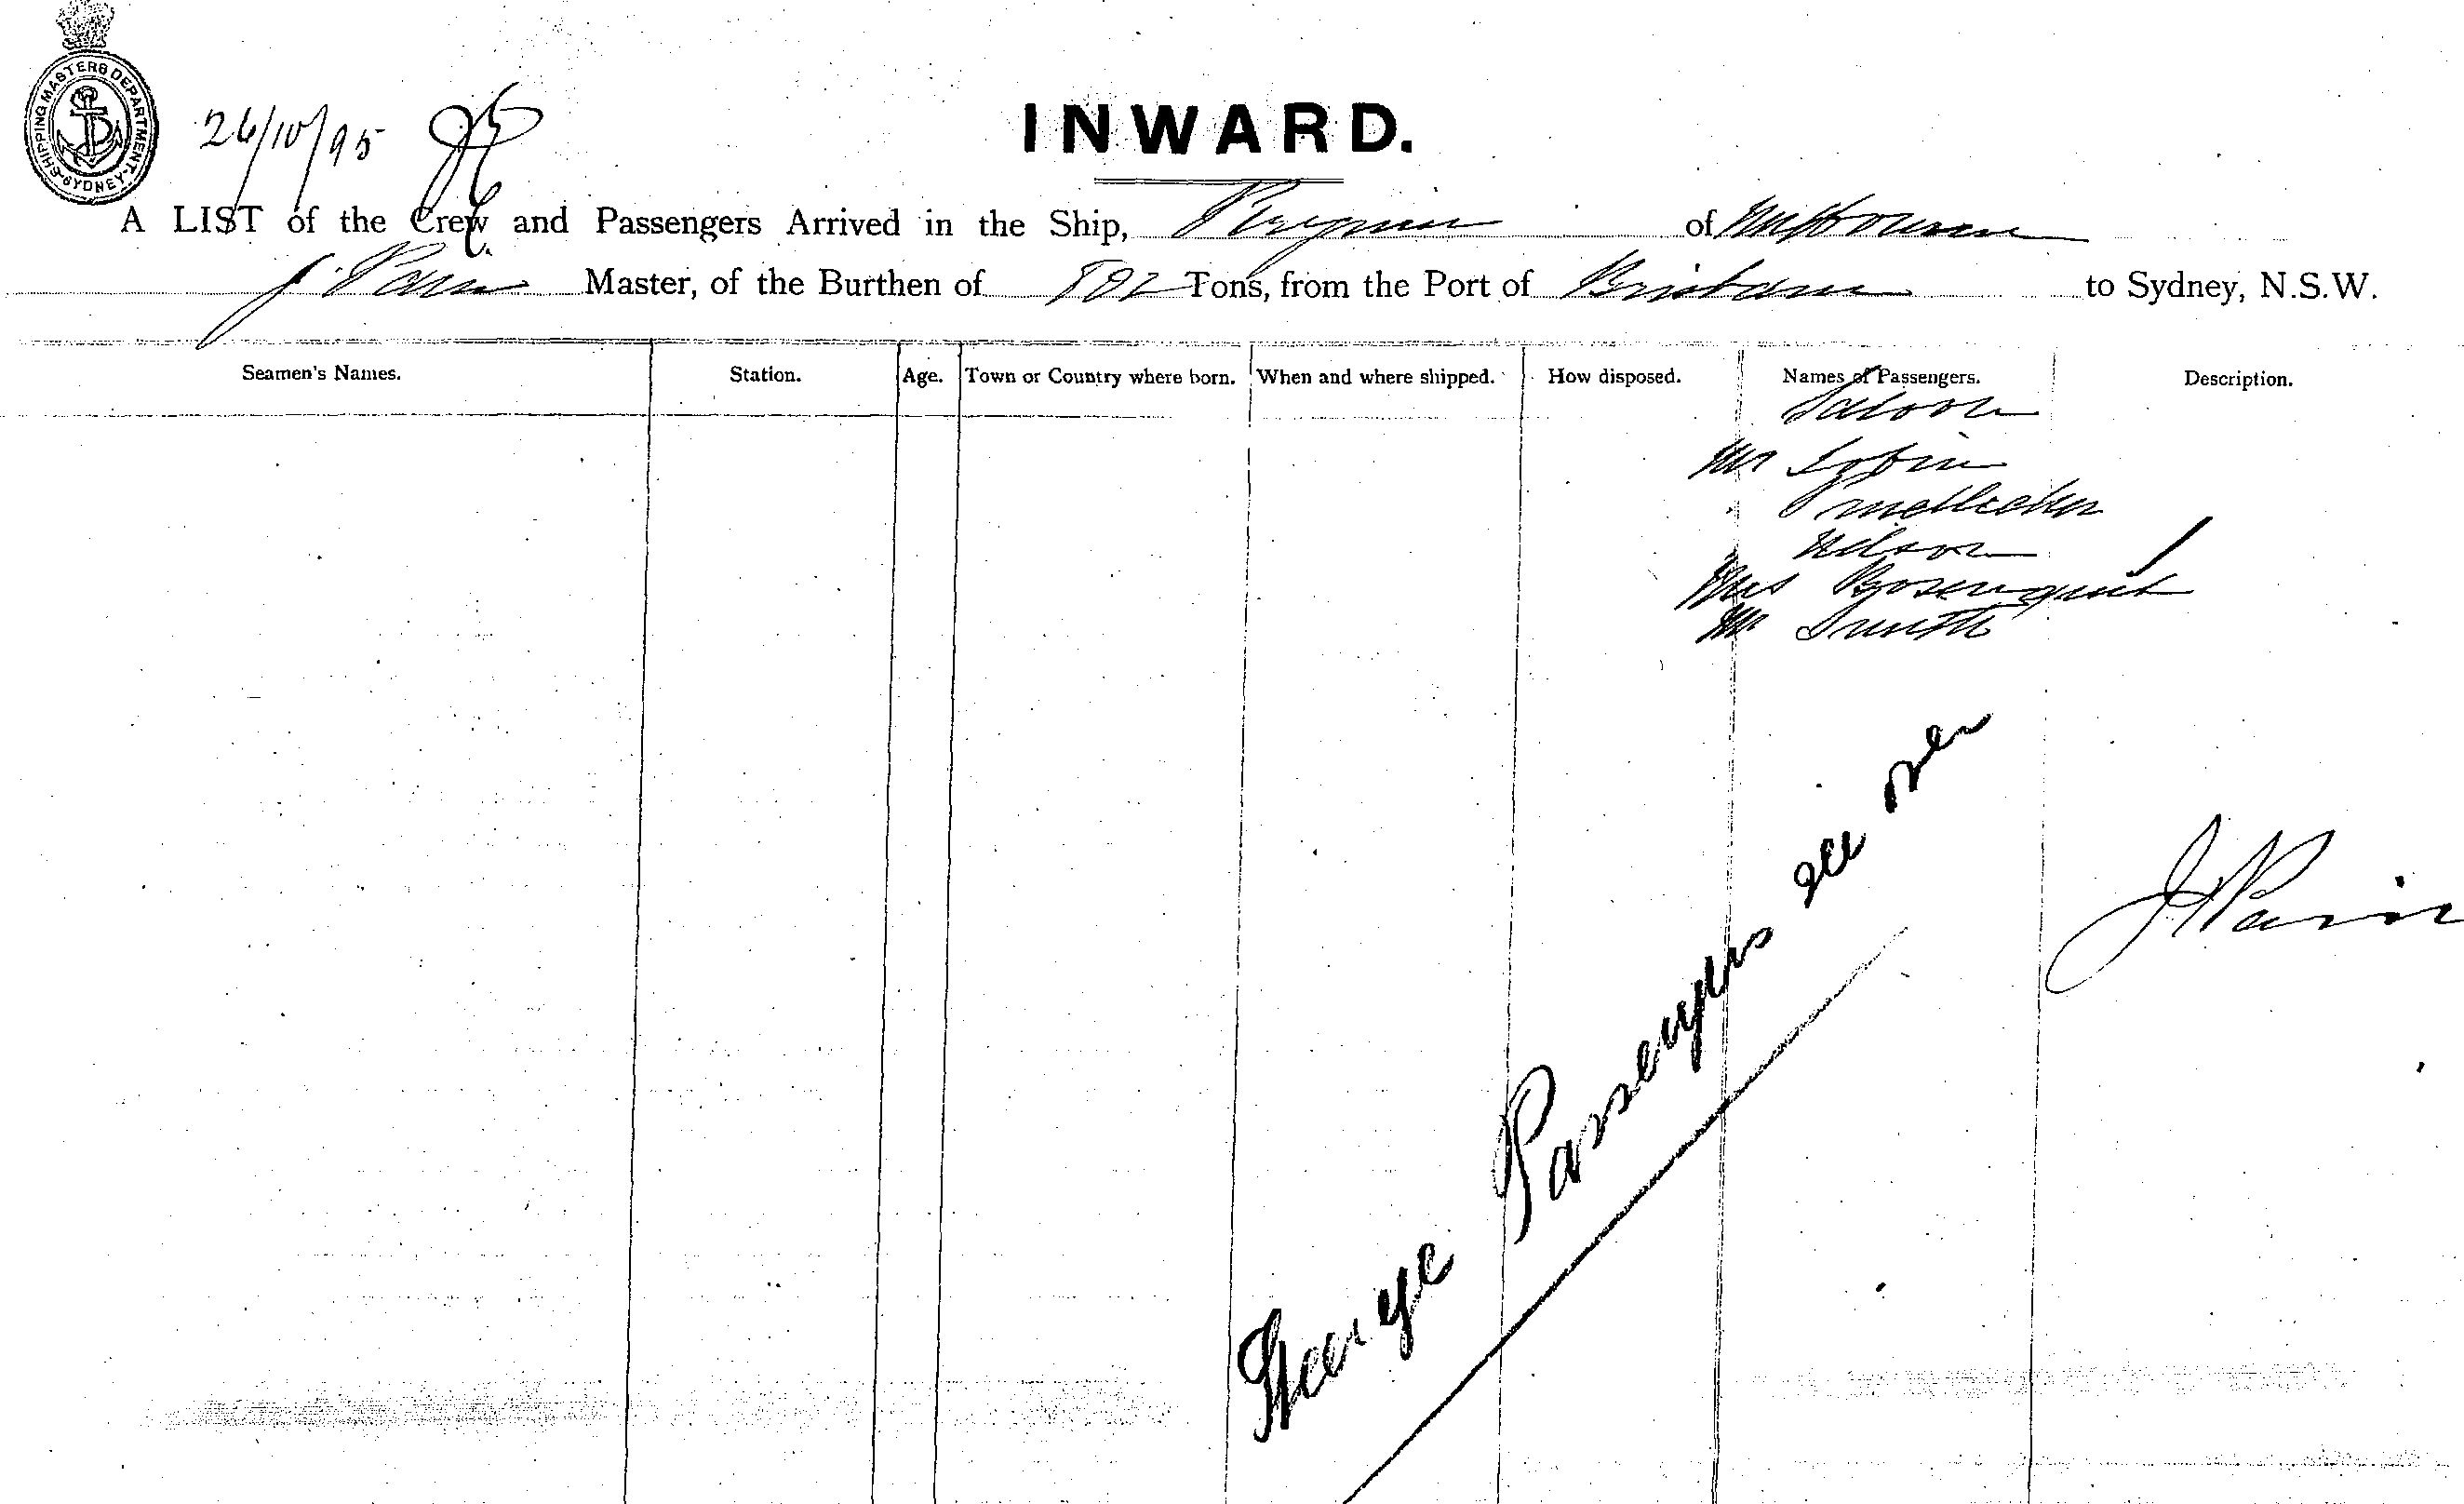 SHIPPING MASTERS DEPARTMENT. SYDNEY
26/10/95
INWARD.
A LIST of the Crew and Passengers Arrived in the Ship, Peregrine of Melbourne
J. Master, of the Burthen of Tons, from the Port of Brisbane to Sydney, N.S.W.
Seamen's Names. Station. Age. Town or Country where born. When and where shipped. How disposed. Names of Passengers. Description.
Saloon
Mr
Wilson
Rosenquist
Mr Smith
Steerage Passengers see
J